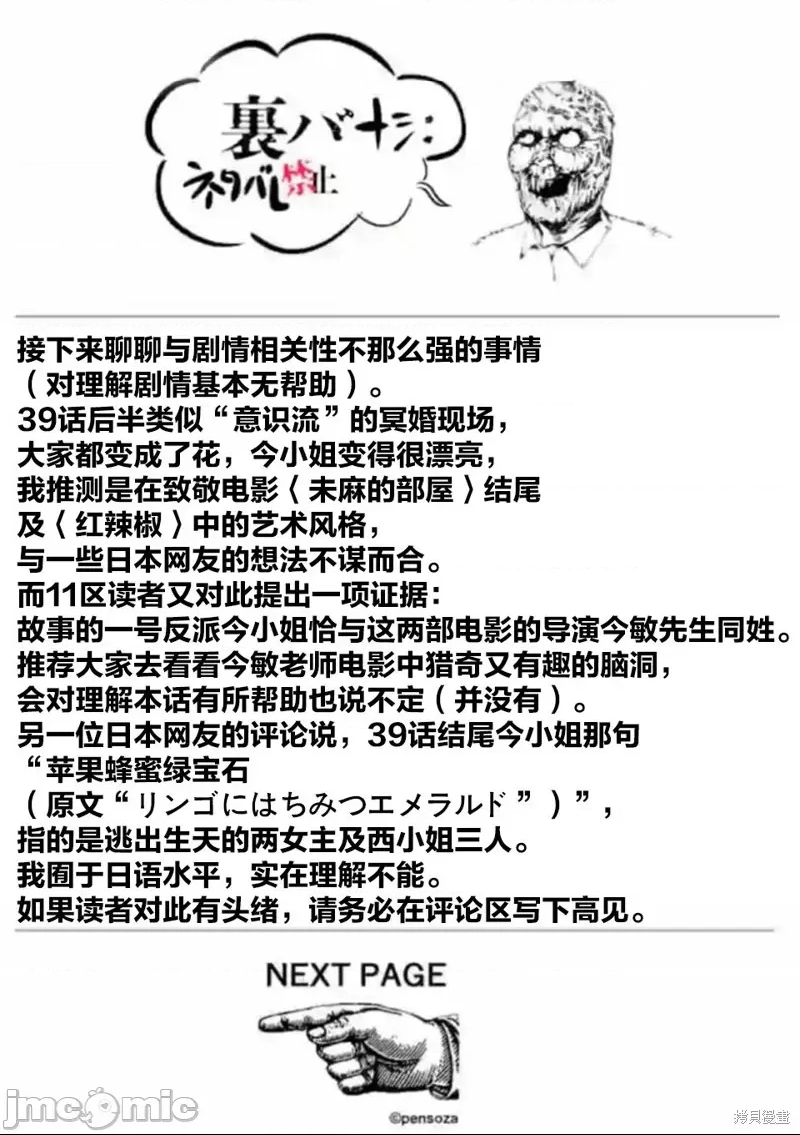 裏バナシ：
ネタバレ禁止
接下来聊聊与剧情相关性不那么强的事情
（对理解剧情基本无帮助）。
39话后半类似“意识流”的冥婚现场，
大家都变成了花，今小姐变得很漂亮，
我推测是在致敬电影〈未麻的部屋〉结尾
及〈红辣椒〉中的艺术风格，
与一些日本网友的想法不谋而合。
而11区读者又对此提出一项证据：
故事的一号反派今小姐恰与这两部电影的导演今敏先生同姓。
推荐大家去看看今敏老师电影中猎奇又有趣的脑洞，
会对理解本话有所帮助也说不定（并没有）。
另一位日本网友的评论说，39话结尾今小姐那句
“苹果蜂蜜绿宝石
（原文“リンゴにはちみつエメラルド”）”，
指的是逃出生天的两女主及西小姐三人。
我囿于日语水平，实在理解不能。
如果读者对此有头绪，请务必在评论区写下高见。
NEXT PAGE
©pensoza
jmcomic
拷貝漫畫